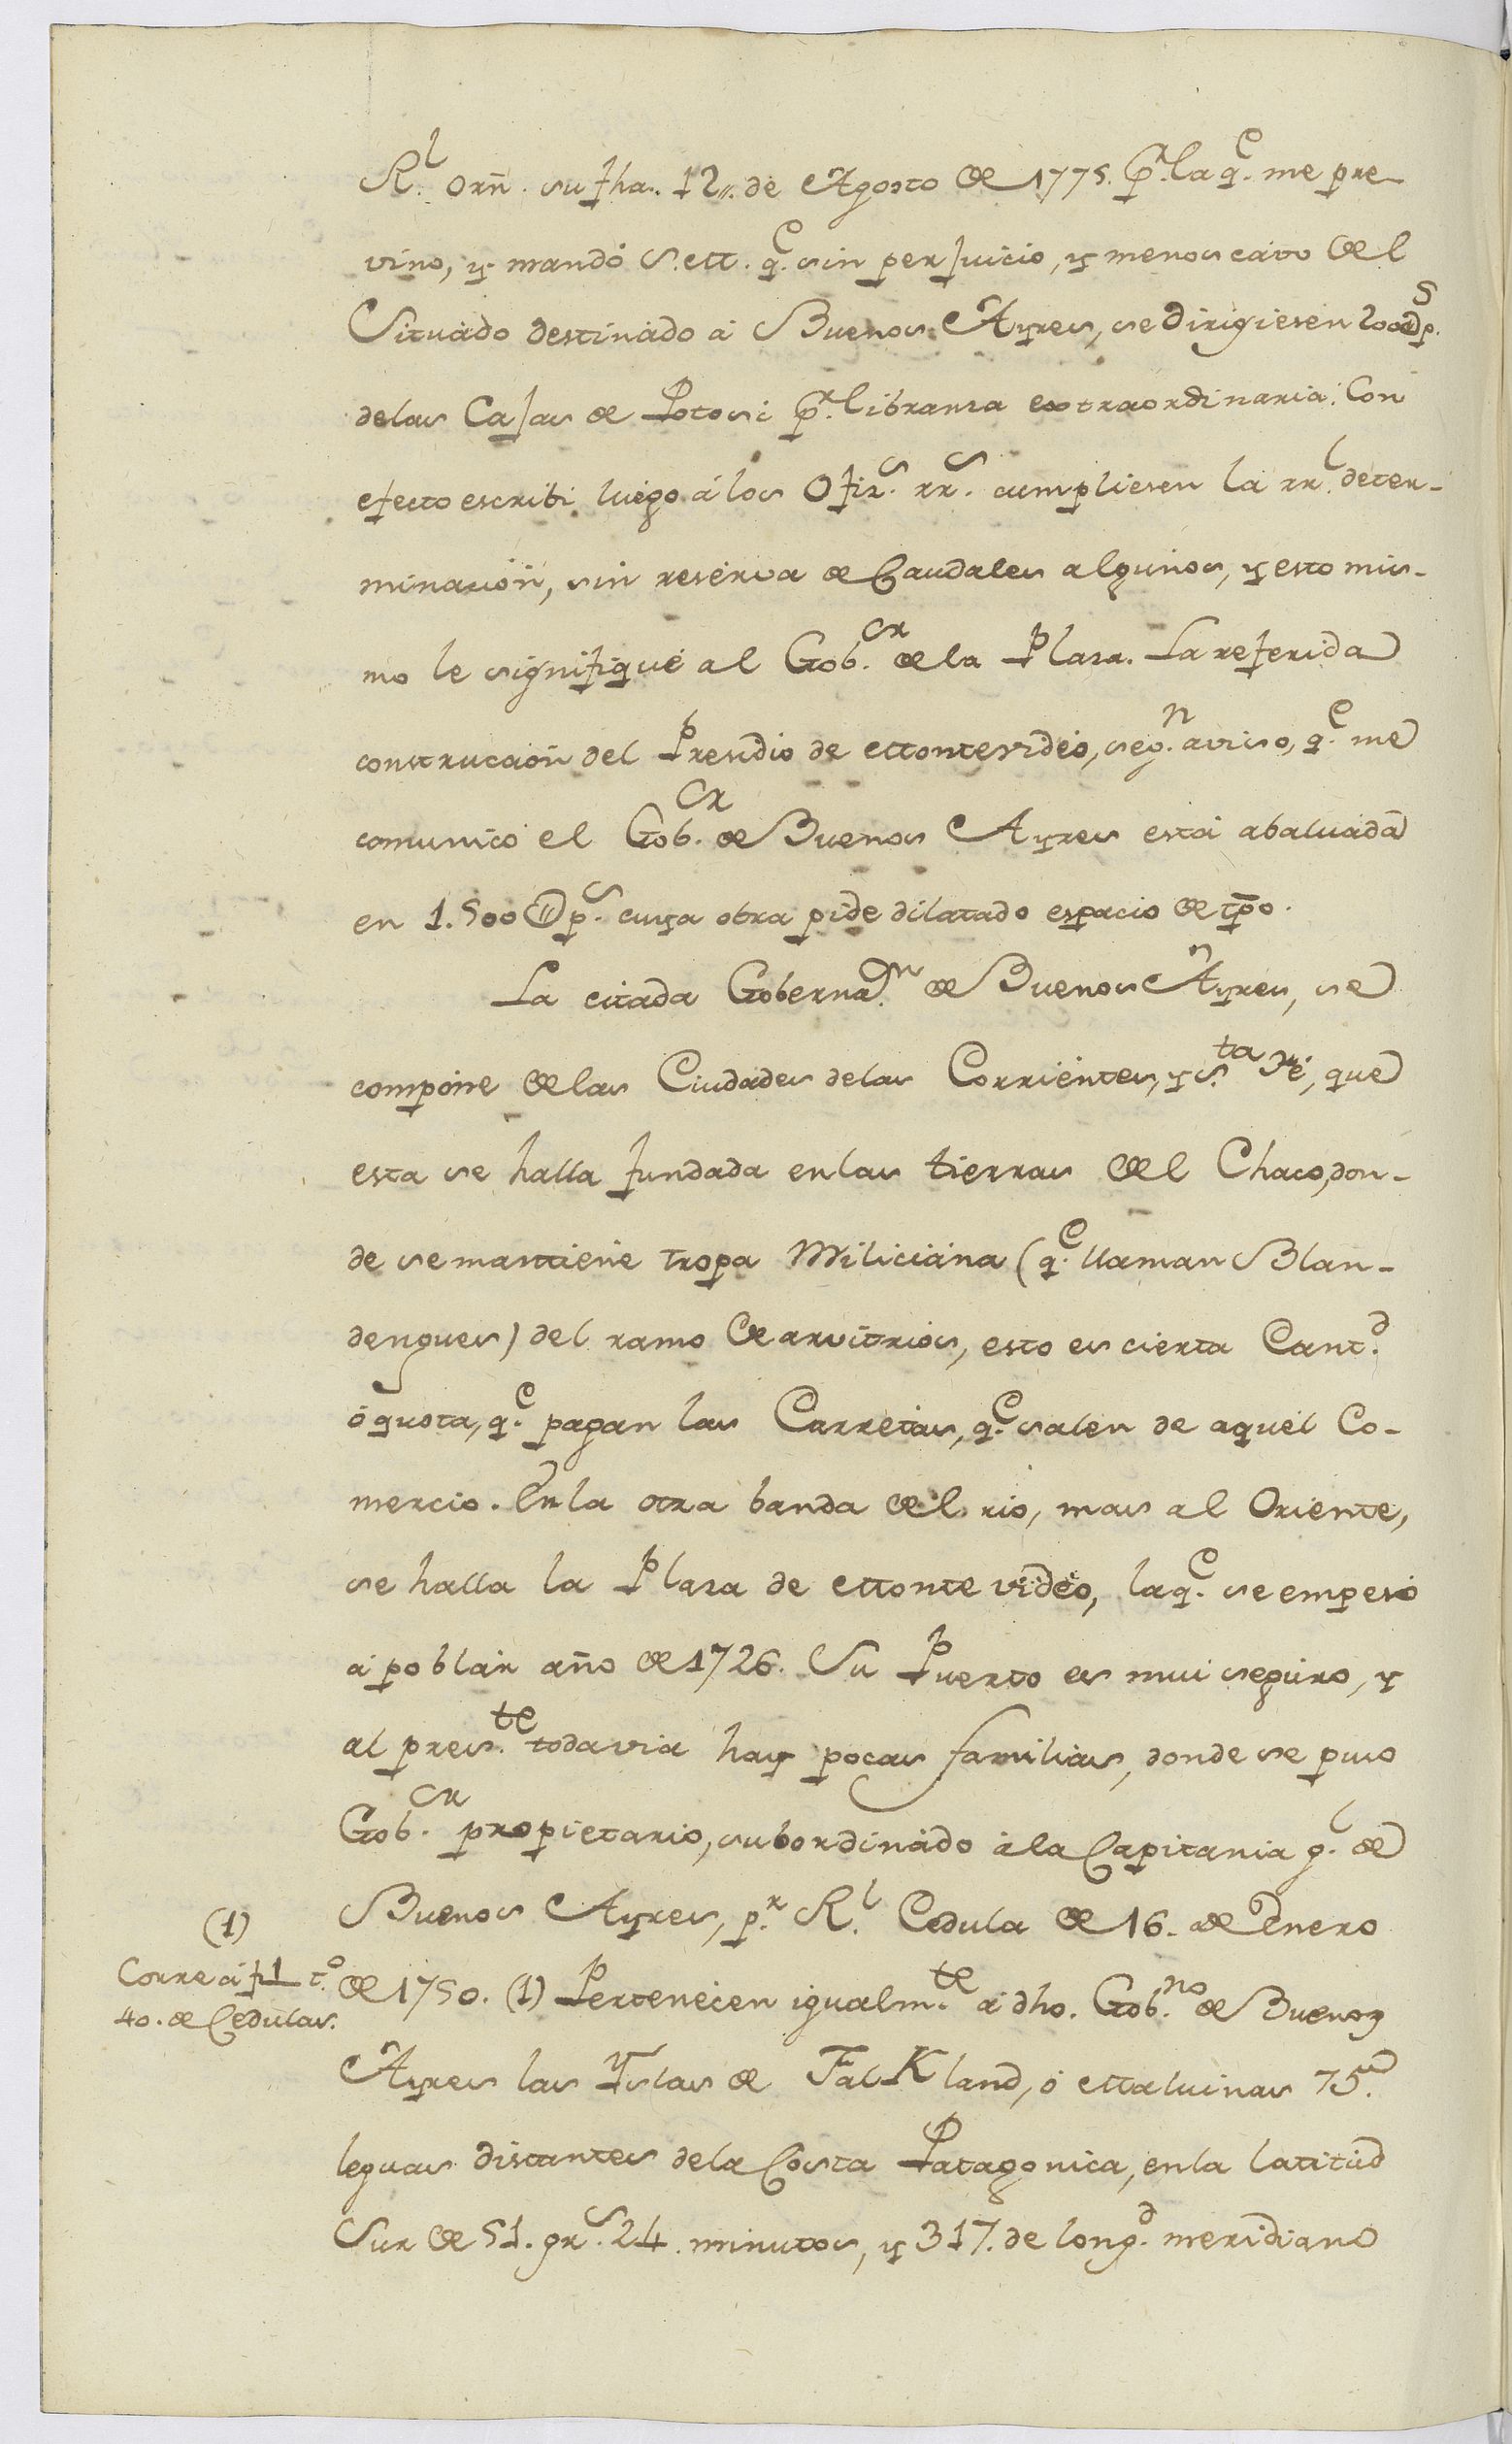 R.l orñ. su fha. 12,, de Agosto de 1775. p.r la q.e me pre-
vino, y mandó S.M. q.e sin perjuicio, y menoscavo del
Situado destinado á Buenos Ayres, se dirigiesen 200 U p.s
delas Cajas de Potosi p.r libransa extraordinaria: Con
efecto escribi luego á los Ofiz.s rr.s cumpliesen la rr.l deter-
minacion, sin reserva de Caudales algunos, y esto mis-
mo le signifiqué al Gob.or de la Plaza. La referida
construccion del Presidio de Montevideo, seg.n aviso, q.e me
comunicó el Gob.or de Buenos Ayres está abaluada
en 1.500 U p.s cuya obra pide dilatado espacio de tpo.
La citada Goberna.on de Buenos Ayres, se
compone de las Ciudades delas Corrientes, y S.ta Fé, que
esta se halla fundada enlas tierras del Chaco, don-
de se mantiene tropa Miliciana (q.e llaman Blan-
dengues) del ramo de arvitrios, esto es cierta Cant.d
ó quota, q.e pagan las Carretas, q.e salen de aquel Co-
mercio. En la otra banda del rio, mas al Oriente,
se halla la Plaza de Montevideo, laq.e se empesó
á poblar año de 1726. Su Puerto es mui seguro, y
al pres.te todavia hay pocas familias, donde se puso
Gob.or propietario, subordinado ála Capitania g.l de
Buenos Ayres, p.r R.l Cedula de 16. de Enero
(1)
Corre á f 1 t.o
40. de Cedulas.
de 1750. (1) Pertenecen igualm.te á dho. Gob.no de Buenos
Ayres las Yslas de FalKland, ó Maluinas 75.
leguas distantes dela Costa Patagonica, enla latitud
Sur de 51. gr.s 24. minutos, y 317. de long.d meridiano